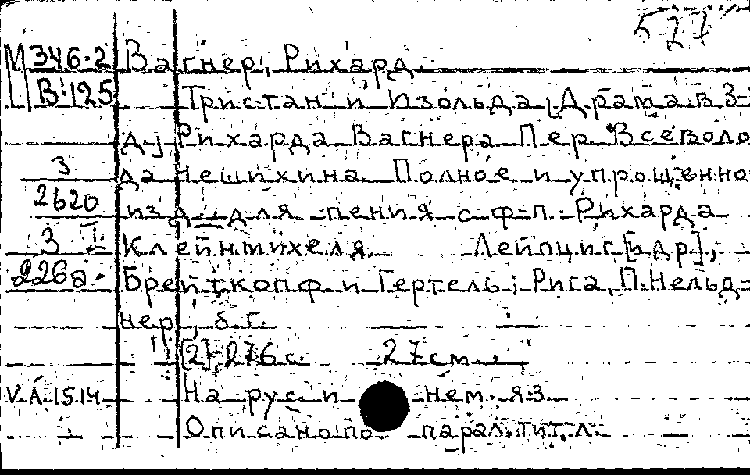 527
М 346-2 Вагнер, Рихард.
В-125 Тристан и Изольда [Драма в 3
д-] Рихарда Вагнера Пер Всеволо
3 да Чешихина. Полное и упрощенно
2620 изд. для пения с ф-п. Рихарда
3 Клейнмихеля. Лейпциг [и др],
226а. Брейткопф и Гертель; Рига, П. Нельд-
нер, б.г.
[2], 276 с. 27 см.
V.A.1514 На рус и нем. яз
Описано по парал. тит. л.